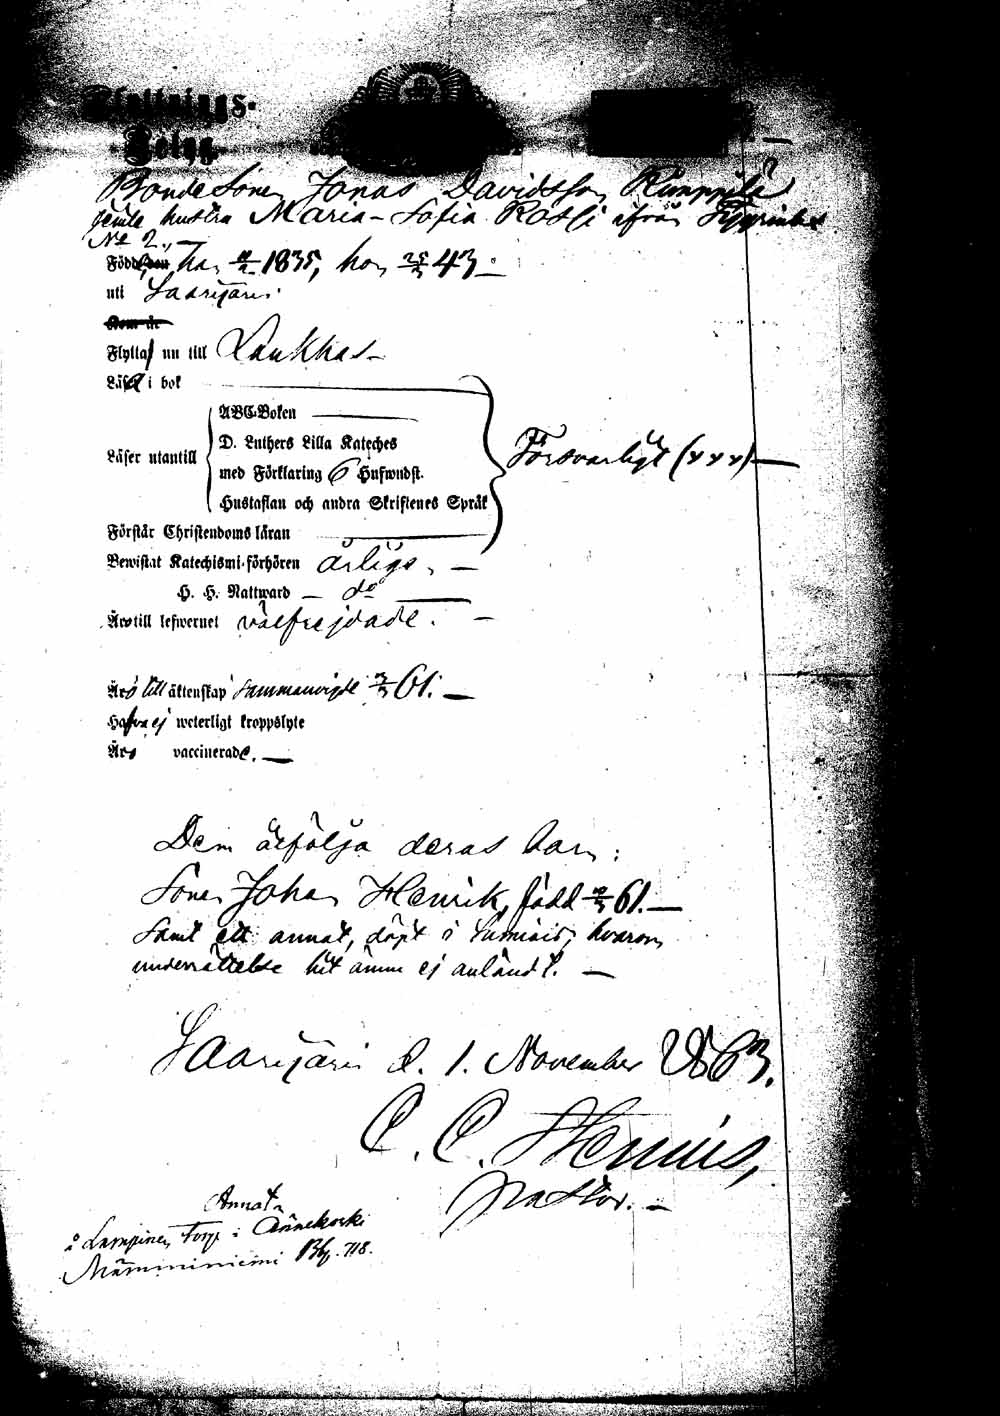 Flyttnings-
Betyg.
Bonde Sonen Jonas Davidsson Rimppilä
jemte hustru Maria-Sofia ifrån
No 2.
Född, han 1835, hon 43.
uti Saarijärvi.
Flytta nu till Laukkas
Läser i bok
ABC-Boken
D. Luthers Lilla Kateches
Läser utantill
med Förklaring 6 Hufwudst.
Hustaflan och andra Skriftenes Språk
Försvarligt (v v v)
Förstår Christendoms läran
Bewistat Katechismi-förhören årligs.
H. H. Nattward do
Äro till lefwernet välfrejdade.
Äro till äktenskap sammanvigde 61.
Hafva ej weterligt kroppslyte
Äro vaccinerade.
Dem åtfölja deras barn:
Sonen Johan Henrik, född 61.
Samt ett annat, döpt i Sumiais, hvarom
underrättelse hit ännu ej anländt.
Saarijärvi d. 1. November 1863.
C. C. Hennius,
Pastor.
Annat.
å Lampinen torp i Äänekoski
Mämminiemi Pag. 718.